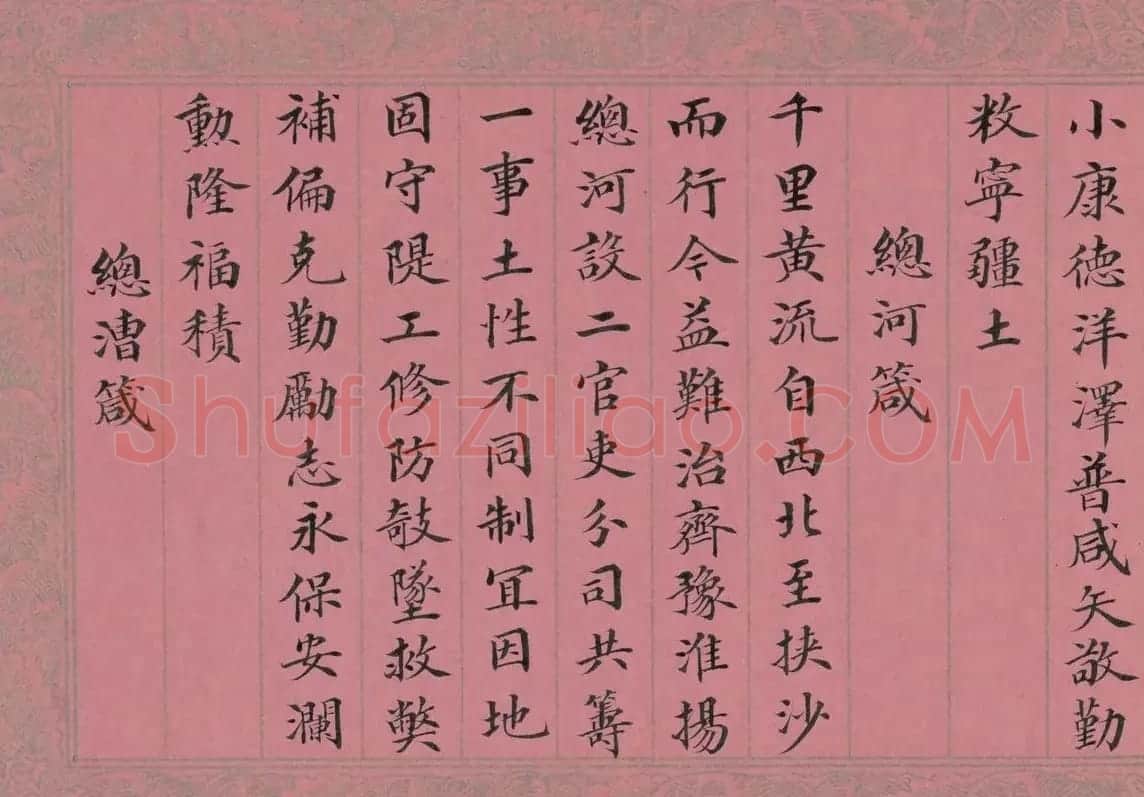 小康德洋澤普咸矢敬勤
敉寧疆土
總河箴
千里黄流自西北至挾沙
而行今益難治齊豫淮揚
總河設二官吏分司共籌
一事土性不同制宜因地
固守隄工修防攲墜救獘
補偏克勤勵志永保安瀾
勳隆福積
總漕箴
Shufaziliao.COM